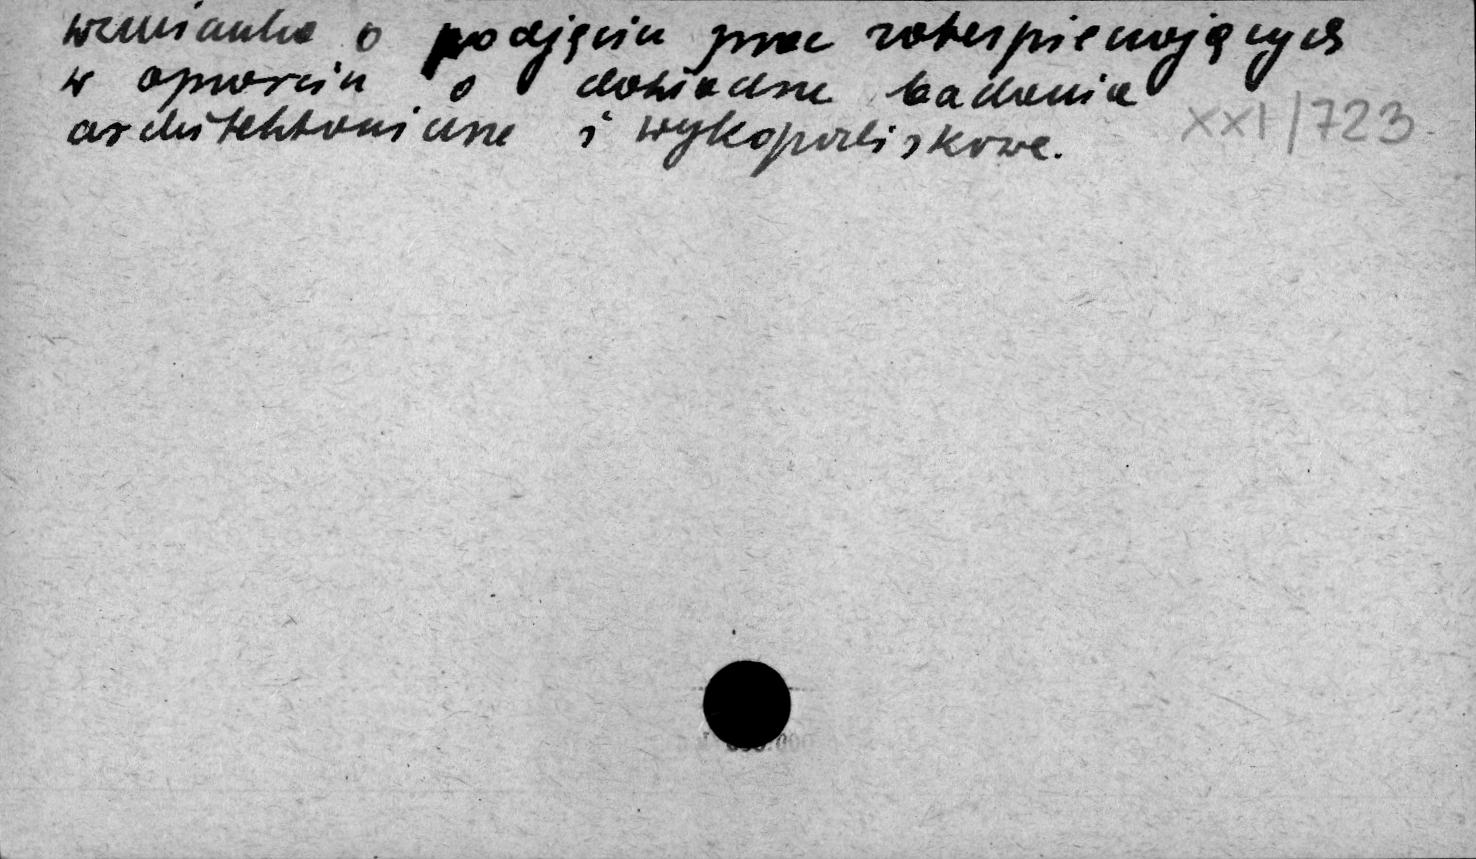 wzmianka o podjęciu prac zabezpieczających
w oparciu o dokładne badania
architektoniczne i wykopaliskowe.
XXI/723